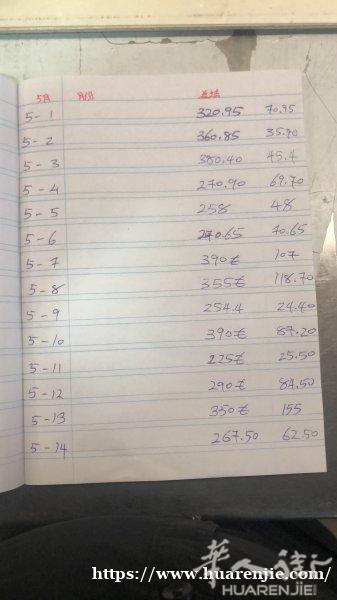 5月 月份 总结
5-1 320.95 70.95
5-2 360.85 35.90
5-3 380.40 45.4
5-4 270.90 69.70
5-5 258 48
5-6 270.65 70.65
5-7 390€ 107
5-8 355€ 118.70
5-9 254.4 24.40
5-10 390€ 87.20
5-11 225€ 25.50
5-12 290€ 84.50
5-13 350€ 155
5-14 267.50 62.50
华人街
HUARENJIE
https://www.huarenjie.com/